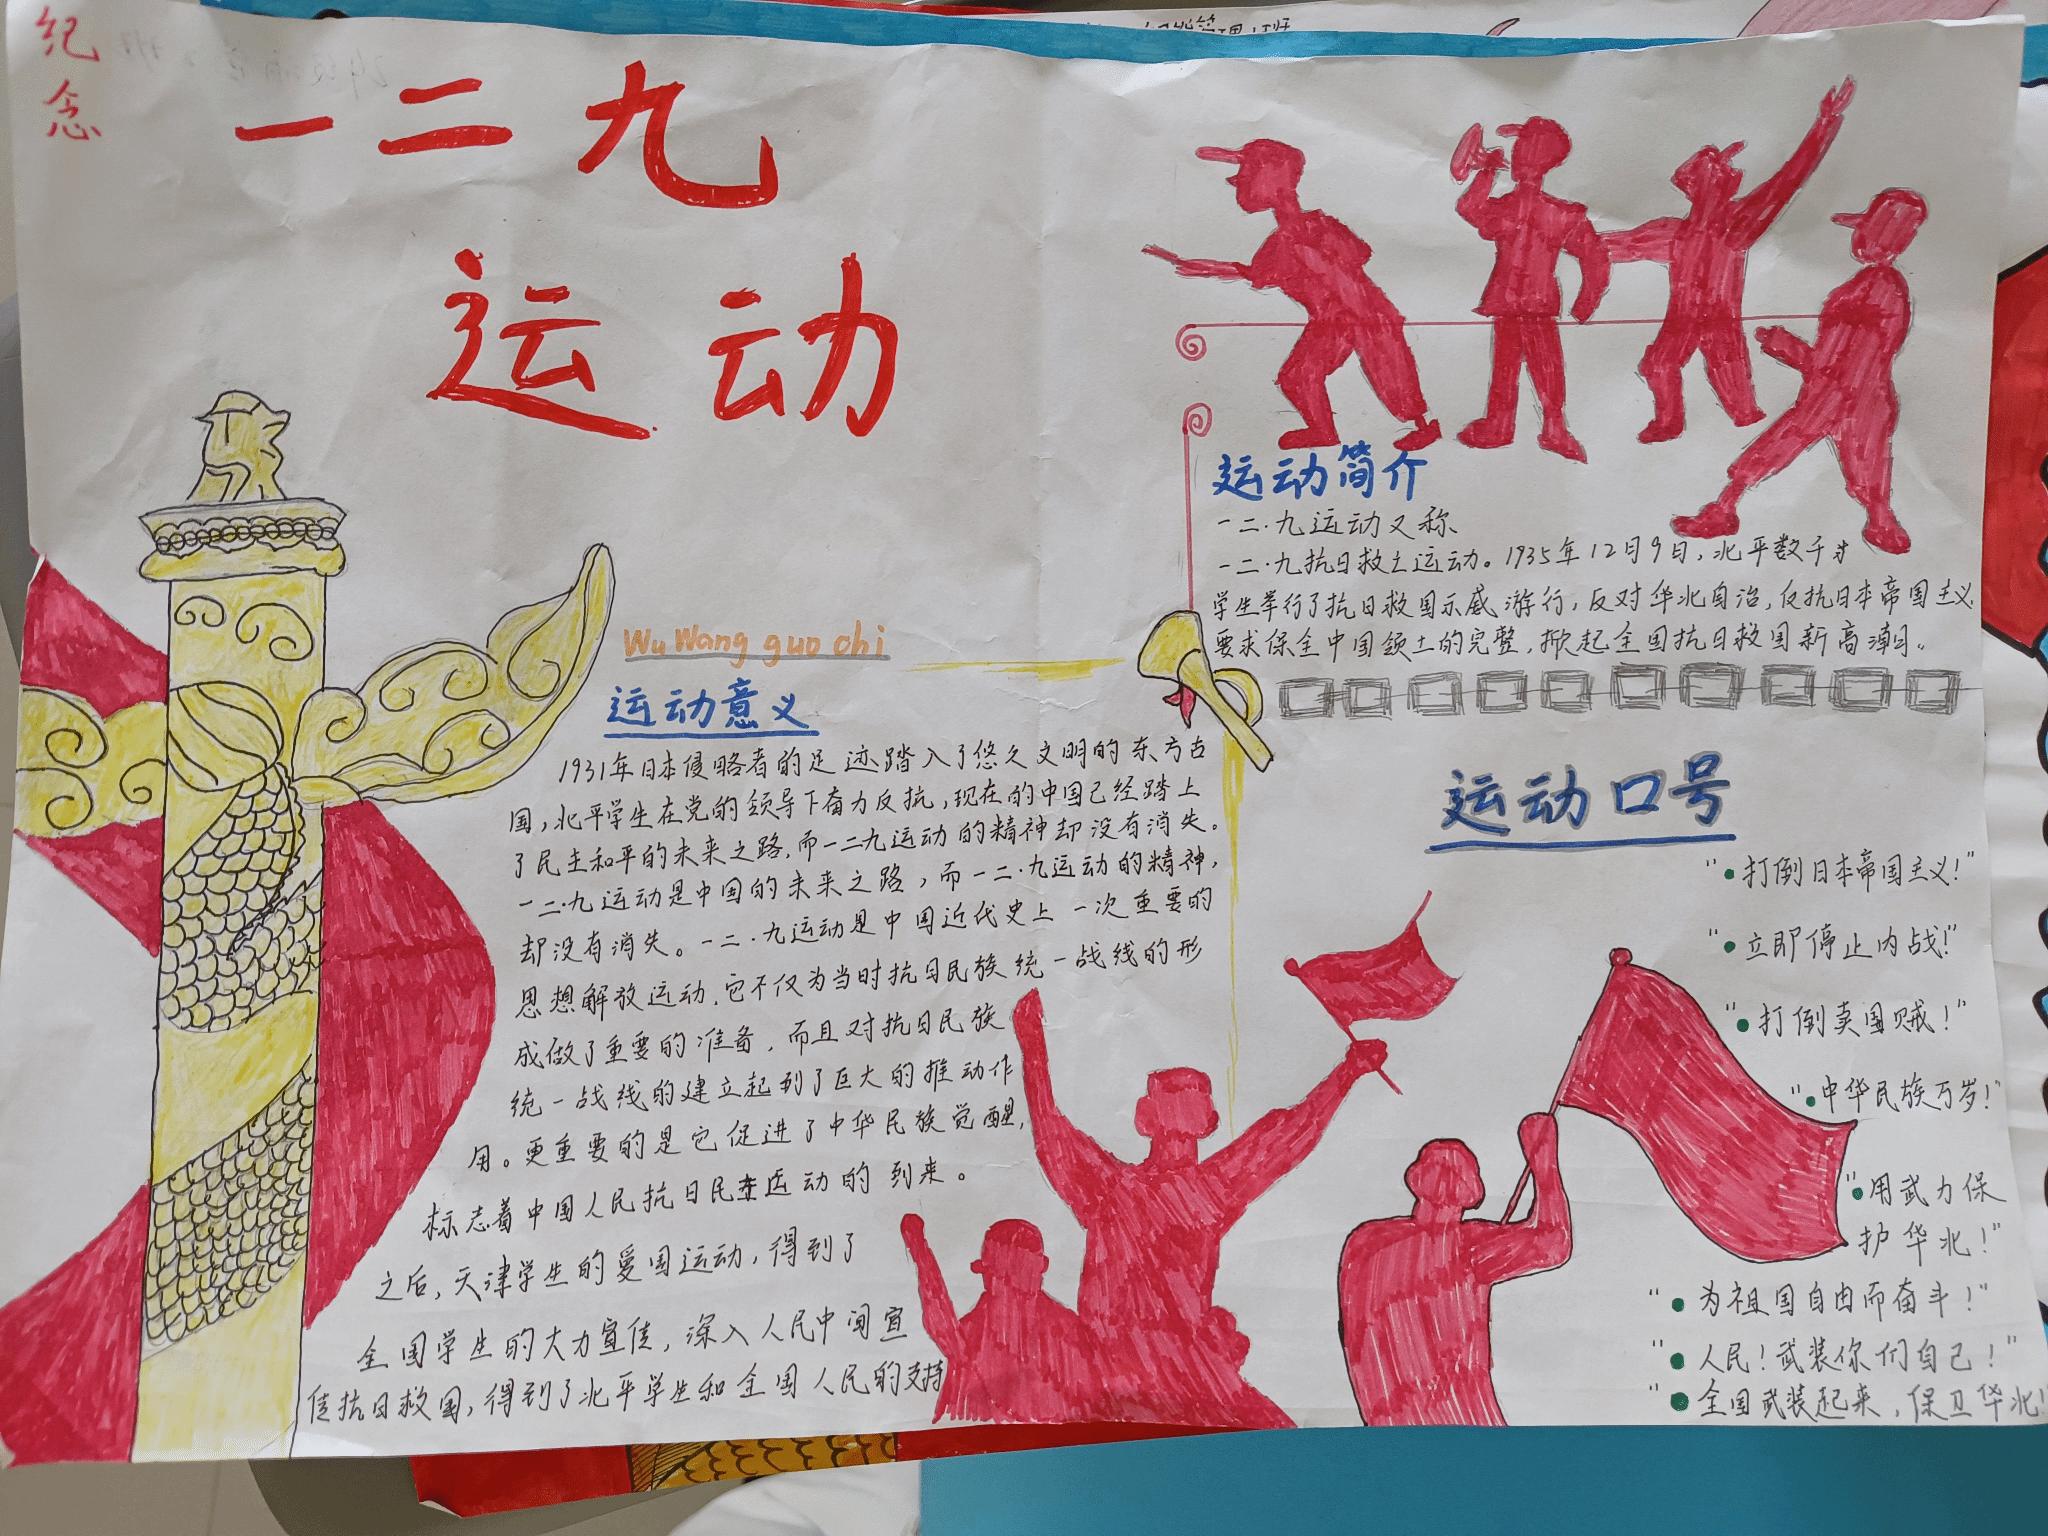 纪念
一二九
运动
运动简介
一二·九运动又称
一二·九抗日救亡运动。1935年12月9日,北平数千
学生举行了抗日救国示威游行,反对华北自治,反抗日本帝国主义
要求保全中国领土的完整,掀起全国抗日救国新高潮。
Wu Wang guo chi
运动意义
1931年日本侵略者的足迹踏入了悠久文明的东方古
国,北平学生在党的领导下奋力反抗,现在的中国已经踏上
了民主和平的未来之路,而一二九运动的精神却没有消失。
一二·九运动是中国的未来之路,而一二·九运动的精神,
却没有消失。一二·九运动是中国近代史上一次重要的
思想解放运动,它不仅为当时抗日民族统一战线的形
成做了重要的准备,而且对抗日民族
统一战线的建立起到了巨大的推动作
用。更重要的是它促进了中华民族觉醒,
标志着中国人民抗日民主运动的到来。
之后,天津学生的爱国运动,得到了
全国学生的大力宣传,深入人民中间宣
传抗日救国,得到了北平学生和全国人民的支持
运动口号
"•打倒日本帝国主义!"
"•立即停止内战!"
"•打倒卖国贼!"
"•中华民族万岁!"
"•用武力保
护华北!"
"•为祖国自由而奋斗!"
"•人民!武装你们自己!"
"•全国武装起来,保卫华北!